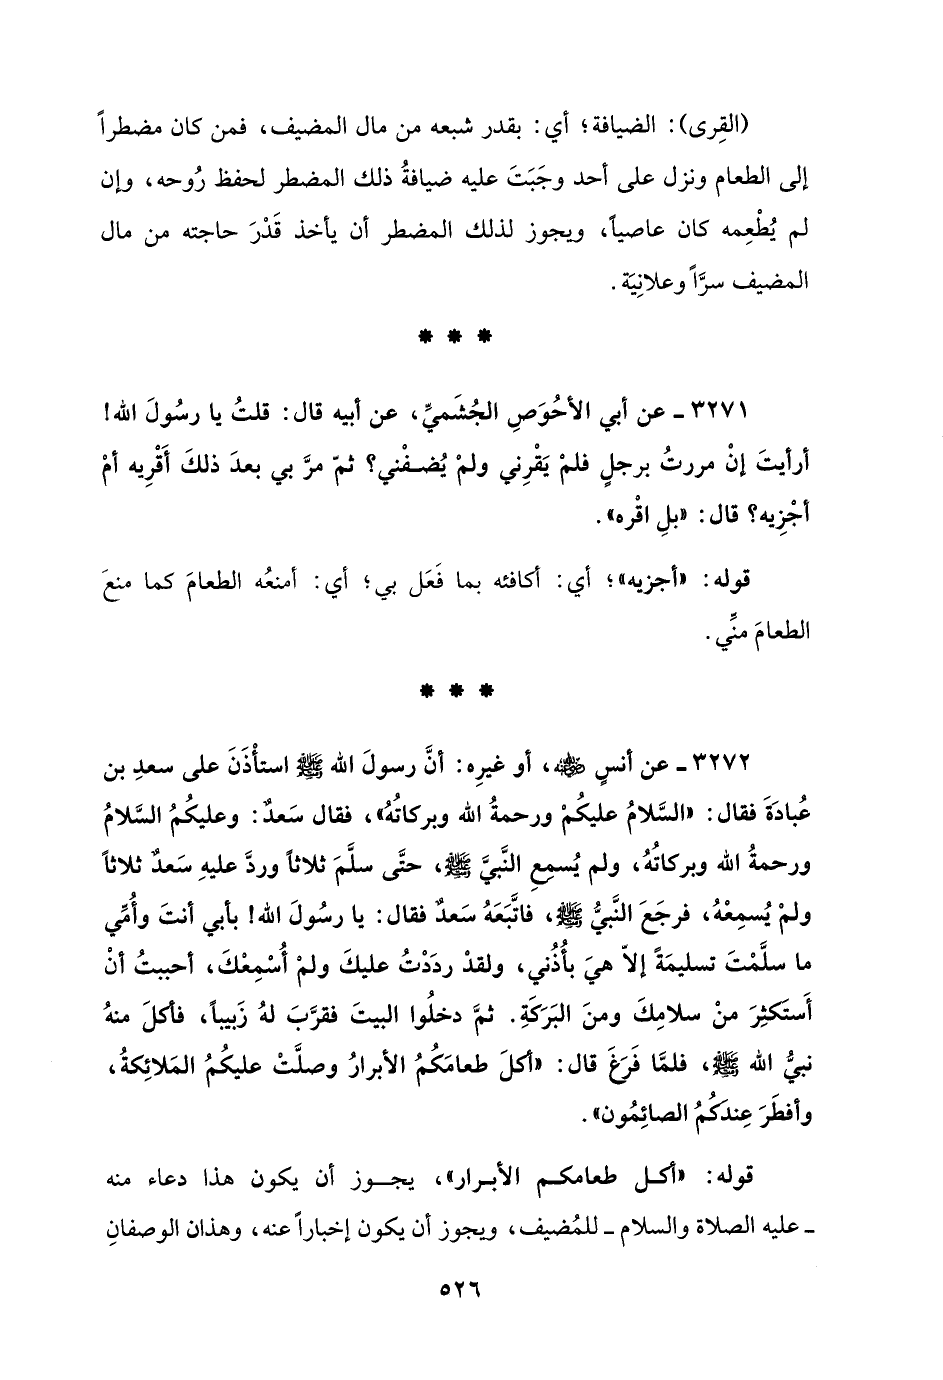 (القِرى): الضيافة؛ أي: بقدر شبعه من مال المضيف، فمن كان مضطراً
إلى الطعام ونزل على أحد وجَبَتَ عليه ضيافةُ ذلك المضطر لحفظ رُوحه، وإن
لم يُطْعِمه كان عاصياً، ويجوز لذلك المضطر أن يأخذ قَدْرَ حاجته من مال
المضيف سرَّاً وعلانِيَة.
* * *
٣٢٧١ ـ عن أبي الأحْوَصِ الجُشَميِّ، عن أبيه قال: قلتُ يا رسُولَ الله!
أرأيتَ إنْ مررتُ برجلٍ فلمْ يَقْرِني ولمْ يُضـفْني؟ ثمّ مرَّ بي بعدَ ذلكَ أَقْرِيه أمْ
أجْزِيه؟ قال: «بلِ اقْره».
قوله: «أجزيه»؛ أي: أكافئه بما فَعَل بي؛ أي: أمنعُه الطعامَ كما منعَ
الطعامَ منِّي.
* * *
٣٢٧٢ ـ عن أنسٍ ﷺ، أو غيرِه: أنَّ رسولَ الله ﷺ استأْذَنَ على سعدِ بن
عُبادَةَ فقال: «السَّلامُ عليكُمْ ورحمةُ الله وبركاتُهُ»، فقال سَعدٌ: وعليكُمُ السَّلامُ
ورحمةُ الله وبركاتُهُ، ولم يُسمِعِ النَّبيَّ ﷺ، حتَّى سلَّمَ ثلاثاً وردَّ عليهِ سَعدٌ ثلاثاً
ولمْ يُسمِعْهُ، فرجَعَ النَّبيُّ ﷺ، فاتَّبَعَهُ سَعدٌ فقال: يا رسُولَ الله! بأبي أنتَ وأُمِّي
ما سلَّمْتَ تسليمَةً إلاّ هيَ بأُذُني، ولقدْ ردَدْتُ عليكَ ولمْ أُسْمِعْكَ، أحببتُ أنْ
أَستَكثِرَ منْ سلامِكَ ومنَ البَرَكَةِ. ثمَّ دخلُوا البيتَ فقرَّبَ لهُ زَبيباً، فأكلَ منهُ
نبيُّ الله ﷺ، فلمَّا فَرَغَ قال: «أكلَ طعامَكُمُ الأبرارُ وصلَّتْ عليكُمُ المَلائِكةُ،
وأفطَرَ عِندَكُمُ الصائِمُون».
قوله: «أكـل طعامكـم الأبـرار»، يجــوز أن يكون هذا دعاء منه
ـ عليه الصلاة والسلام ـ للمُضيف، ويجوز أن يكون إخباراً عنه، وهذان الوصفانِ
٥٢٦